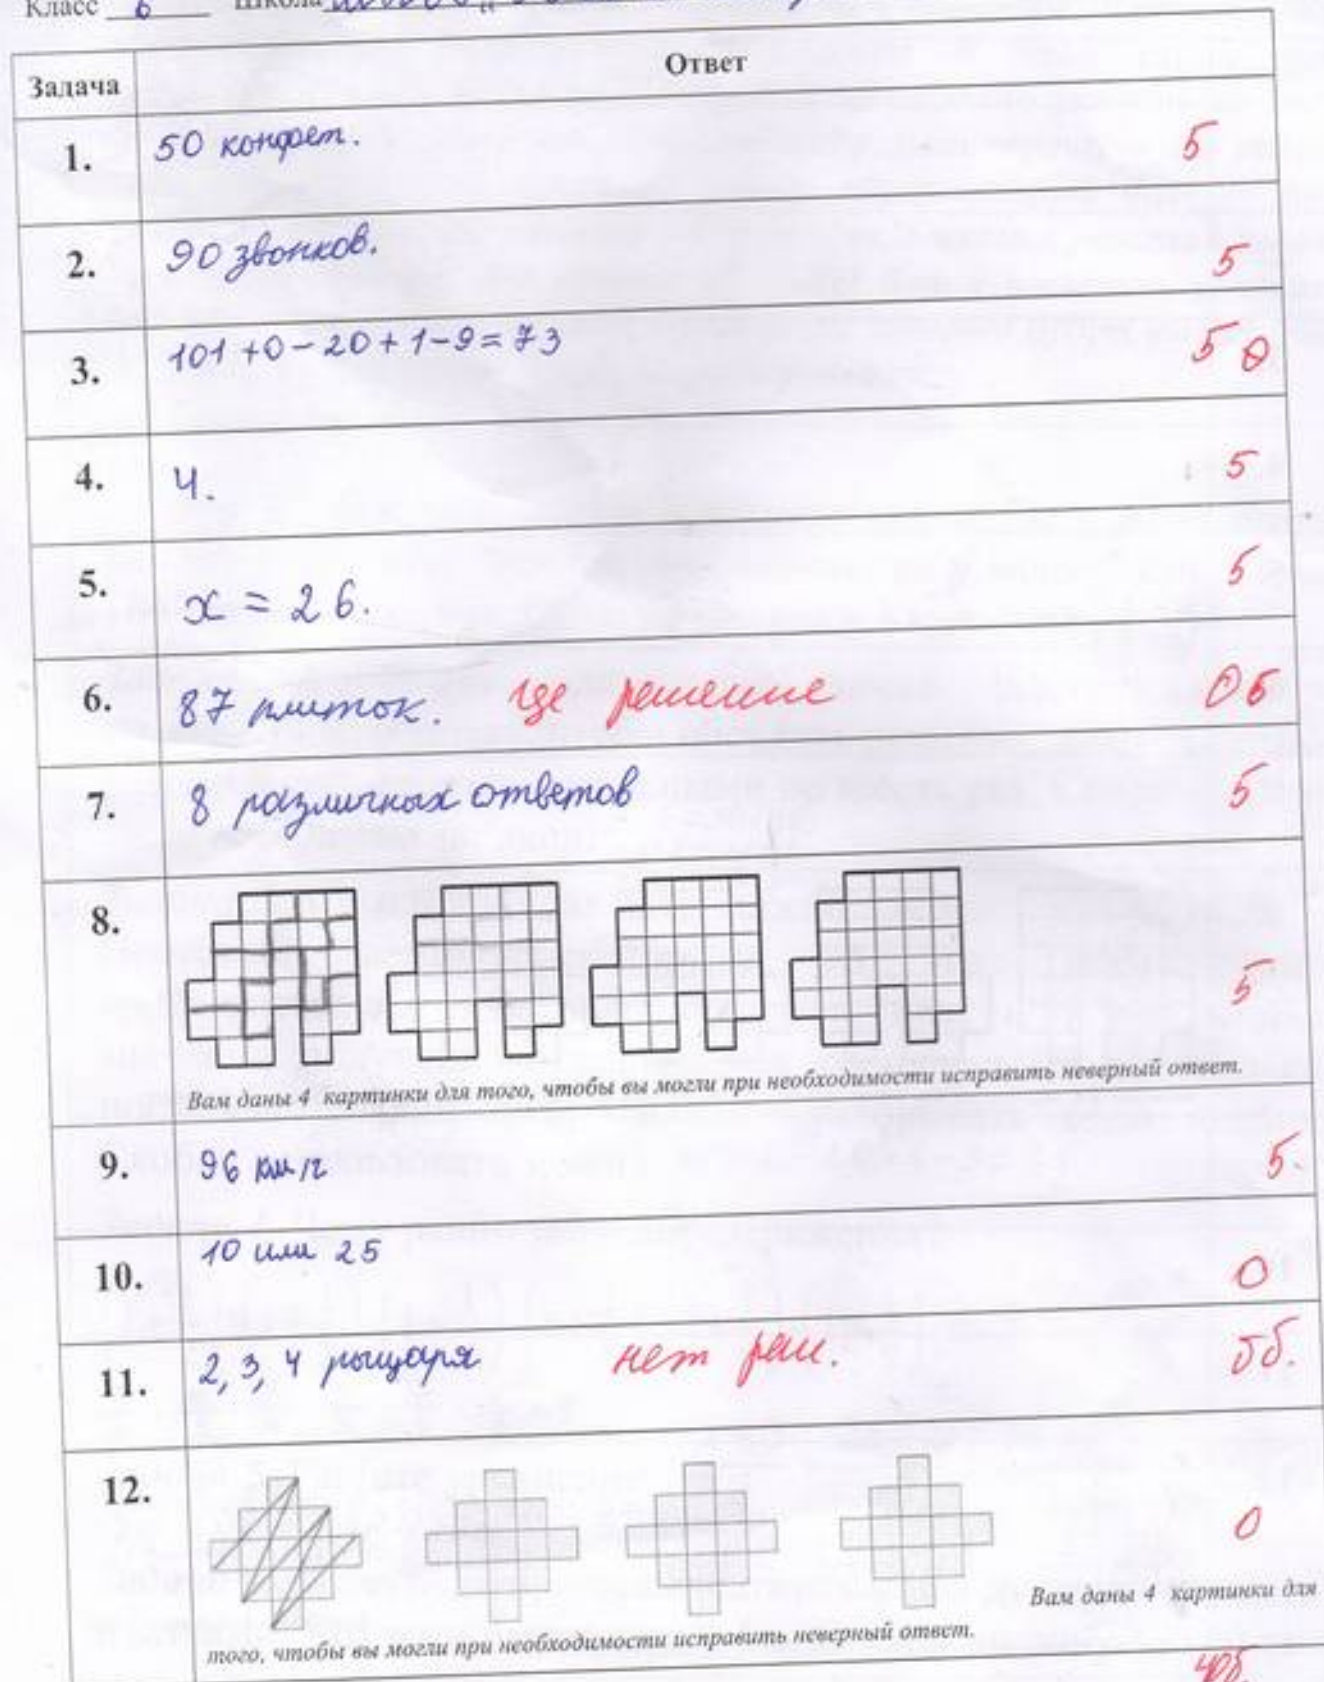 Класс 6 Школа
Задача Ответ
1. 50 конфет. 5
2. 90 звонков. 5
3. 101+0-20+1-9=73 5 0
4. 4. 5
5. x = 26. 5
6. 87 плиток. где решение 0б
7. 8 различных ответов 5
8. 5
Вам даны 4 картинки для того, чтобы вы могли при необходимости исправить неверный ответ.
9. 96 км/ч 5.
10. 10 или 25 0
11. 2, 3, 4 рыцаря нет реш. 5б.
12. 0
Вам даны 4 картинки для
того, чтобы вы могли при необходимости исправить неверный ответ.